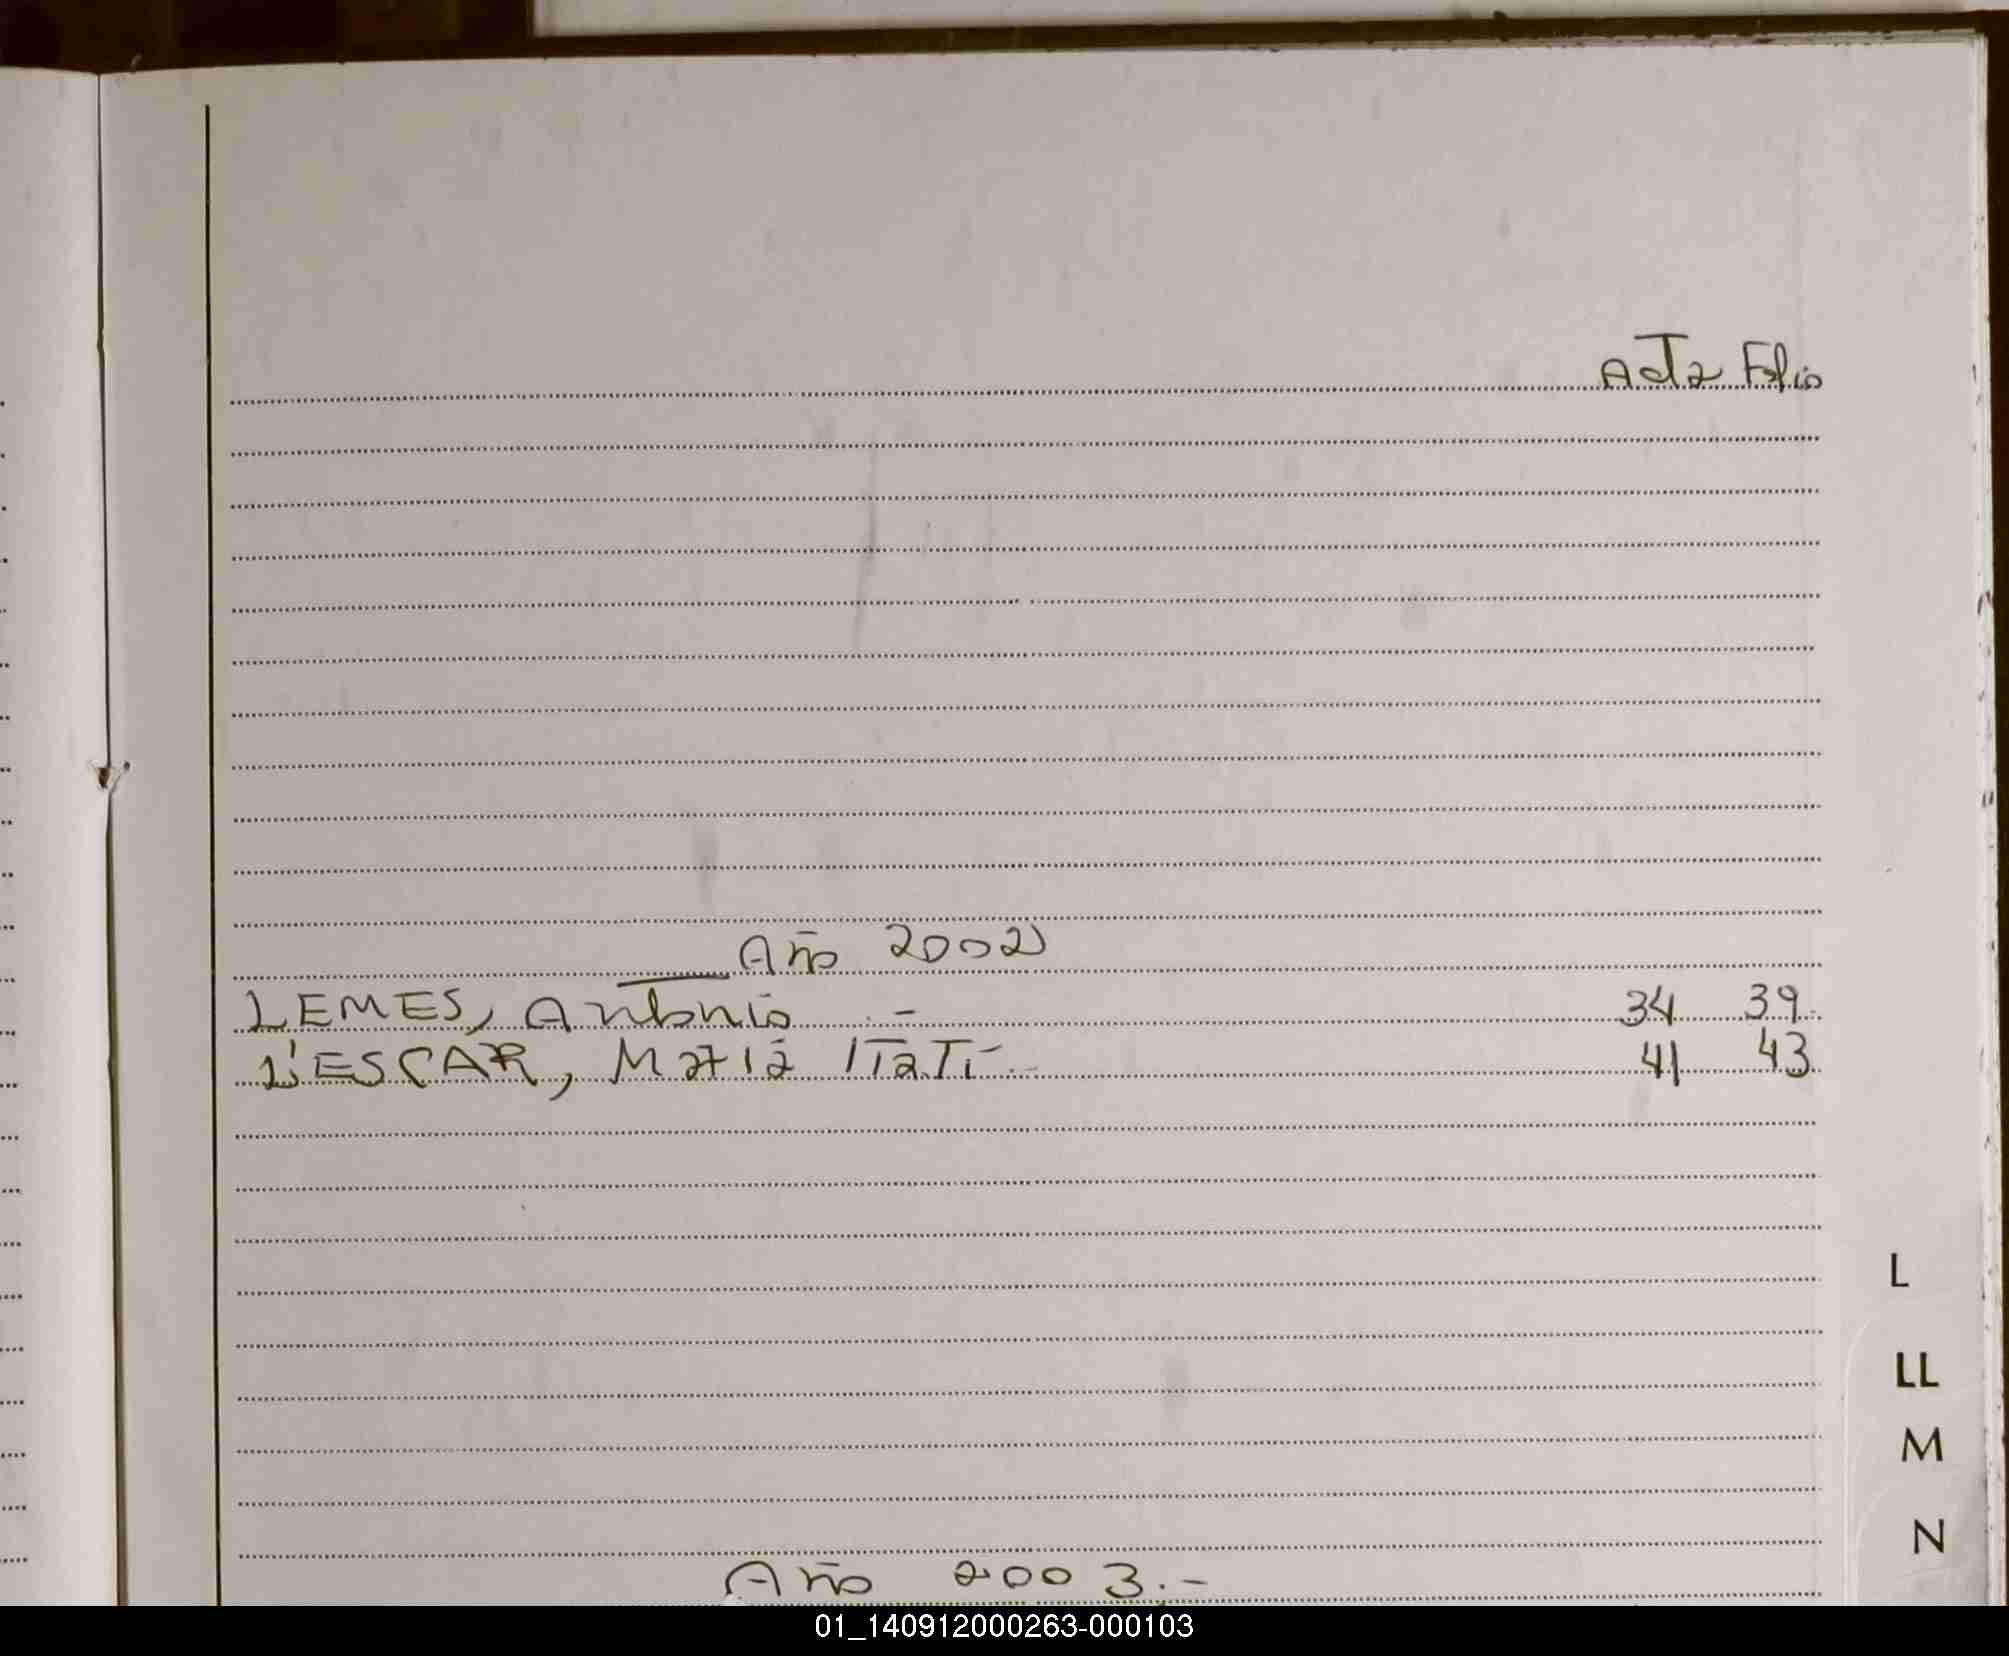 Acta Folio
Año 2002
LEMES, Antonio .- 34 39
L'ESCAR, María Itatí.- 41 43
L
LL
M
N
Año 2003.-
01_140912000263-000103